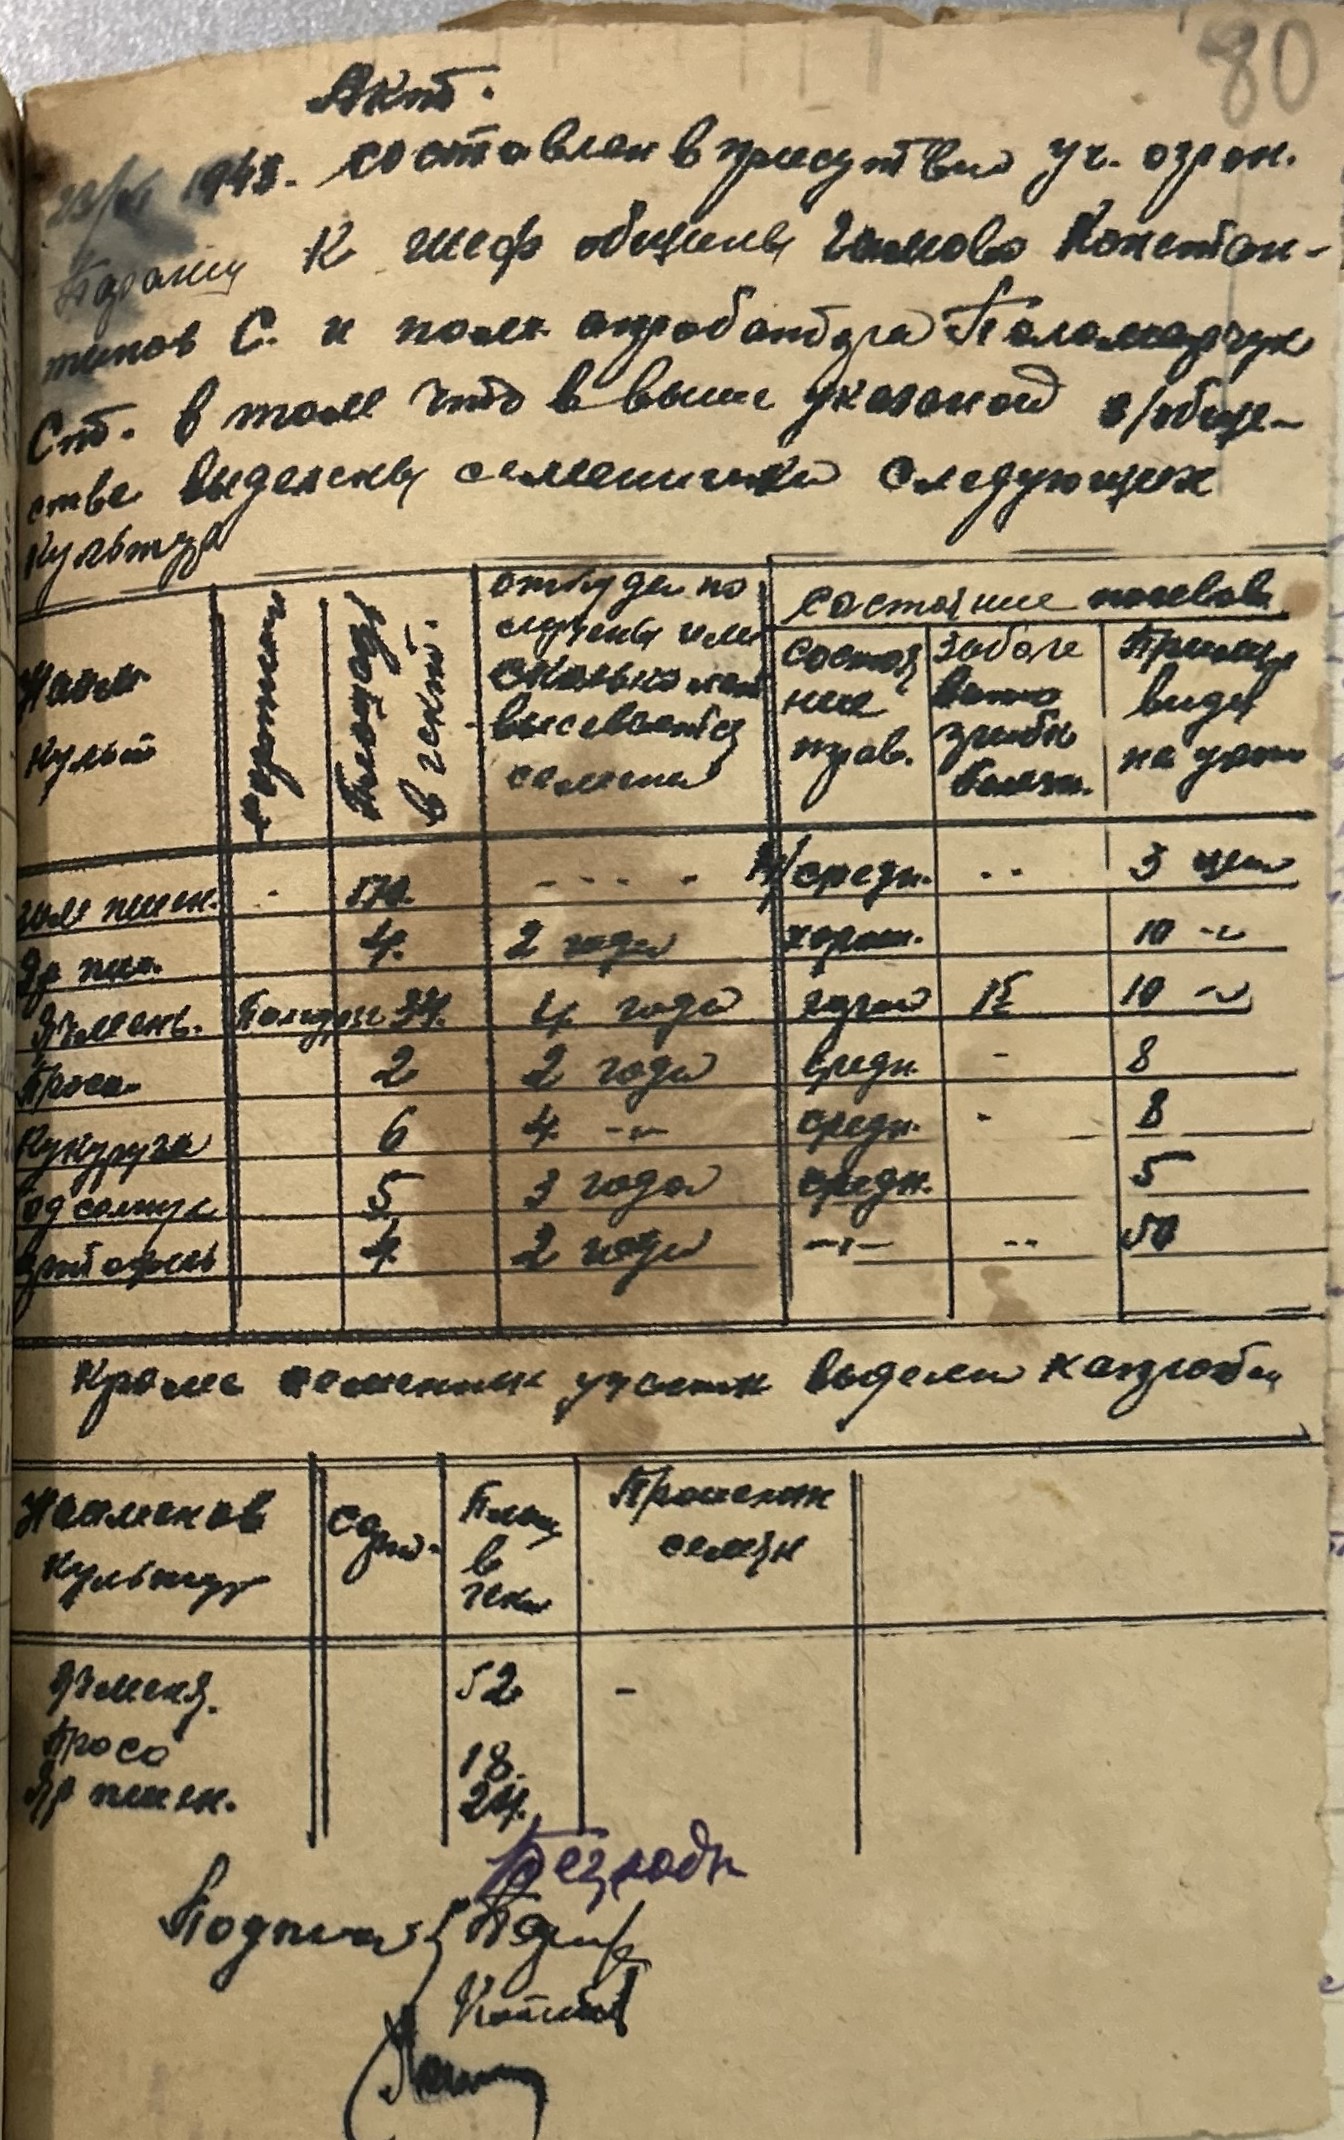 80
Акт.
1943. составлен в присутствии уч. агрон.
К шеф общины Константи-
нов С. и полев. апробатора Паламарчук
Ст. в том что в выше указаной с/обще-
стве выделены семеники следующих
культур
Наим. культ | сортность | Площадь в гект. | откуда по лучены или сколько лет высеваются семена | состояние посевов
состоя ние трав. | заболе ванно грибн болезн. | Примерн виды на урож
озим пшен. | - | 50. | - - - - | н/средн. | - - | 3 цен
Яр пшен. | 4. | 2 года | хорош. | 10 -"-
Ячмень. | 34. | 4 года | 10 -"-
Просо | 2 | 2 года | средн. | - | 8
Кукуруза | 6 | 4 -"- | средн. | - | 8
Подсолнух | 5 | 3 года | средн. | 5
Картофель | 4. | 2 года | -"- | - - | 50
Кроме семенных участк выделен
Наименов культур | Сорт. | Площ в гект | Происхож семян
Ячменя. | 52 | -
Просо | 18.
Яр пшен. | 24.
Подписи